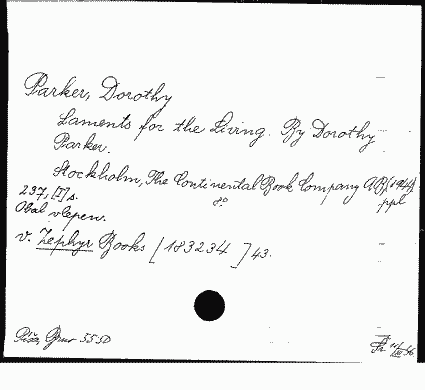 Parker, Dorothy
Laments for the Living. By Dorothy
Parker.
Stockholm, The Continental Book Company AB, (1944).
8° ppl
237, [1] s.
Obal vlepen.
v. Zephyr Books [183234] 43.
5550